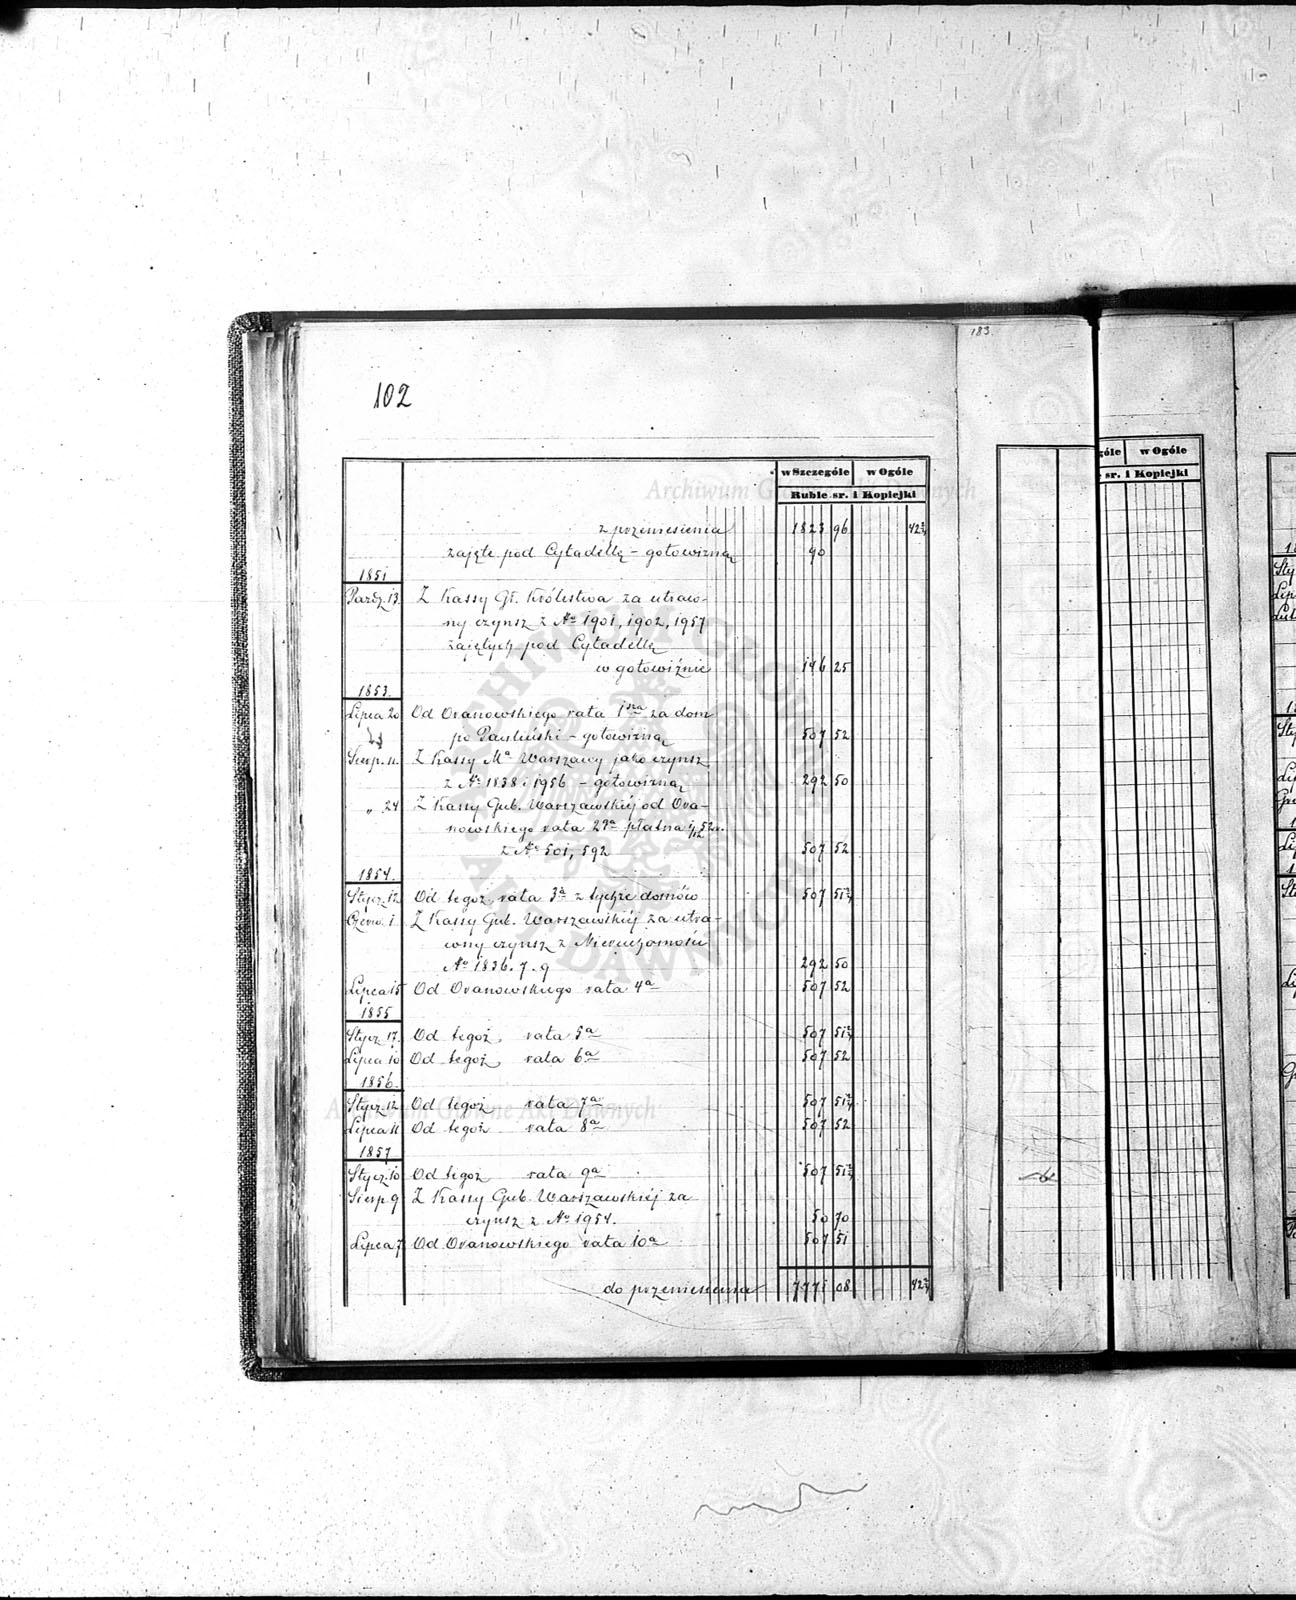 183
102
w Szczególe w Ogóle
Ruble sr. i Kopiejki
z przeniesienia 1823 96 42¾
zajęte pod Cytadellę – gotowizną 90
1851
Paźdz. 13. Z Kassy Gł. Królestwa za utraco-
ny czynsz z No 1901, 1902, 1957
zajętych pod Cytadellę
w gotowiźnie 146 25
1853.
Lipca 20 Od Oranowskiego rata 1sza za dom
po Pauliński – gotowizną 507 52
Sierp. 11. Z Kassy Ma Warszawy jako czynsz
z No 1838 i 1956 – gotowizną 292 50
" 24 Z Kassy Gub. Warszawskiej od Ora-
nowskiego rata 2ga płatna 1/12 52 r.
z No 501, 592 507 52
1854.
Stycz. 12 Od tegoż rata 3a z tychże domów 507 51½
Czerw. 1. Z Kassy Gub. Warszawskiej za utra-
cony czynsz z Nieruchomości
No 1836. 7. 9 292 50
Lipca 15 Od Oranowskiego rata 4a 507 52
1855
Stycz. 17. Od tegoż rata 5a 507 51½
Lipca 10 Od tegoż rata 6a 507 52
1856.
Stycz. 12 Od tegoż rata 7a 507 51½
Lipca 11 Od tegoż rata 8a 507 52
1857
Stycz. 10 Od tegoż rata 9a 507 51½
Sierp 9 Z Kassy Gub. Warszawskiej za
czynsz z No 1954. 50 70
Lipca 7 Od Oranowskiego rata 10a 507 51
do przeniesienia 7775 08 42¾
góle w Ogóle
sr. i Kopiejki
Archiwum Główne Akt Dawnych
ARCHIWUM GŁÓWNE AKT DAWNYCH
Archiwum Główne Akt Dawnych